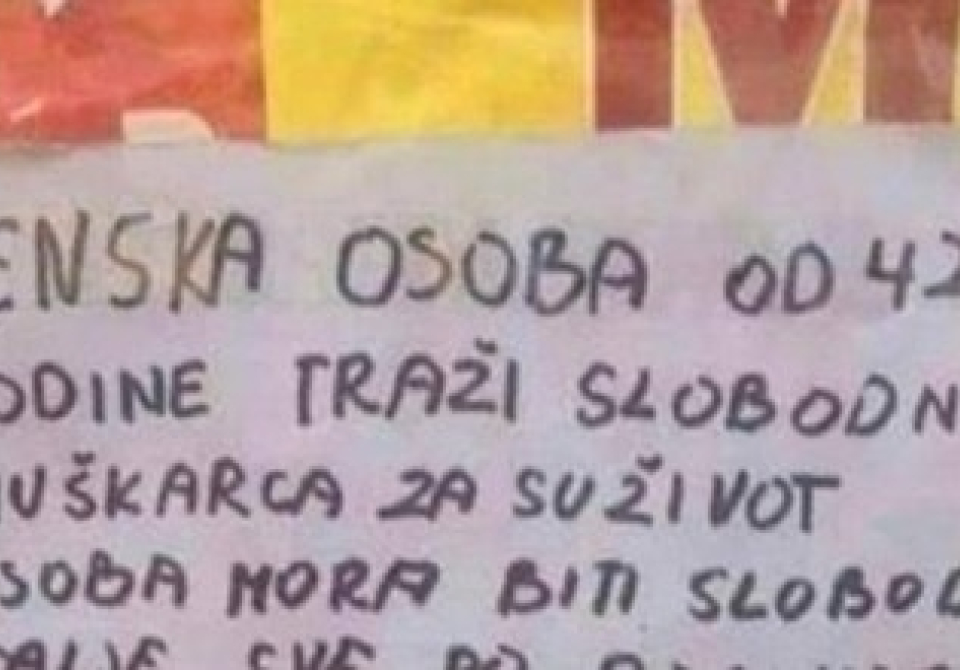 ENSKA OSOBA OD 42
ODINE TRAŽI SLOBODN
UŠKARCA ZA SUŽIVOT
SOBA MORA BITI SLOBOD
SVE PO